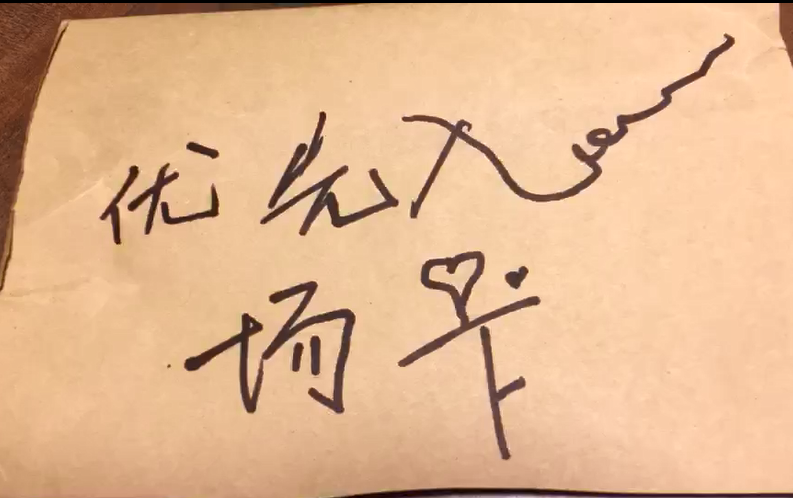 优先入
场卡